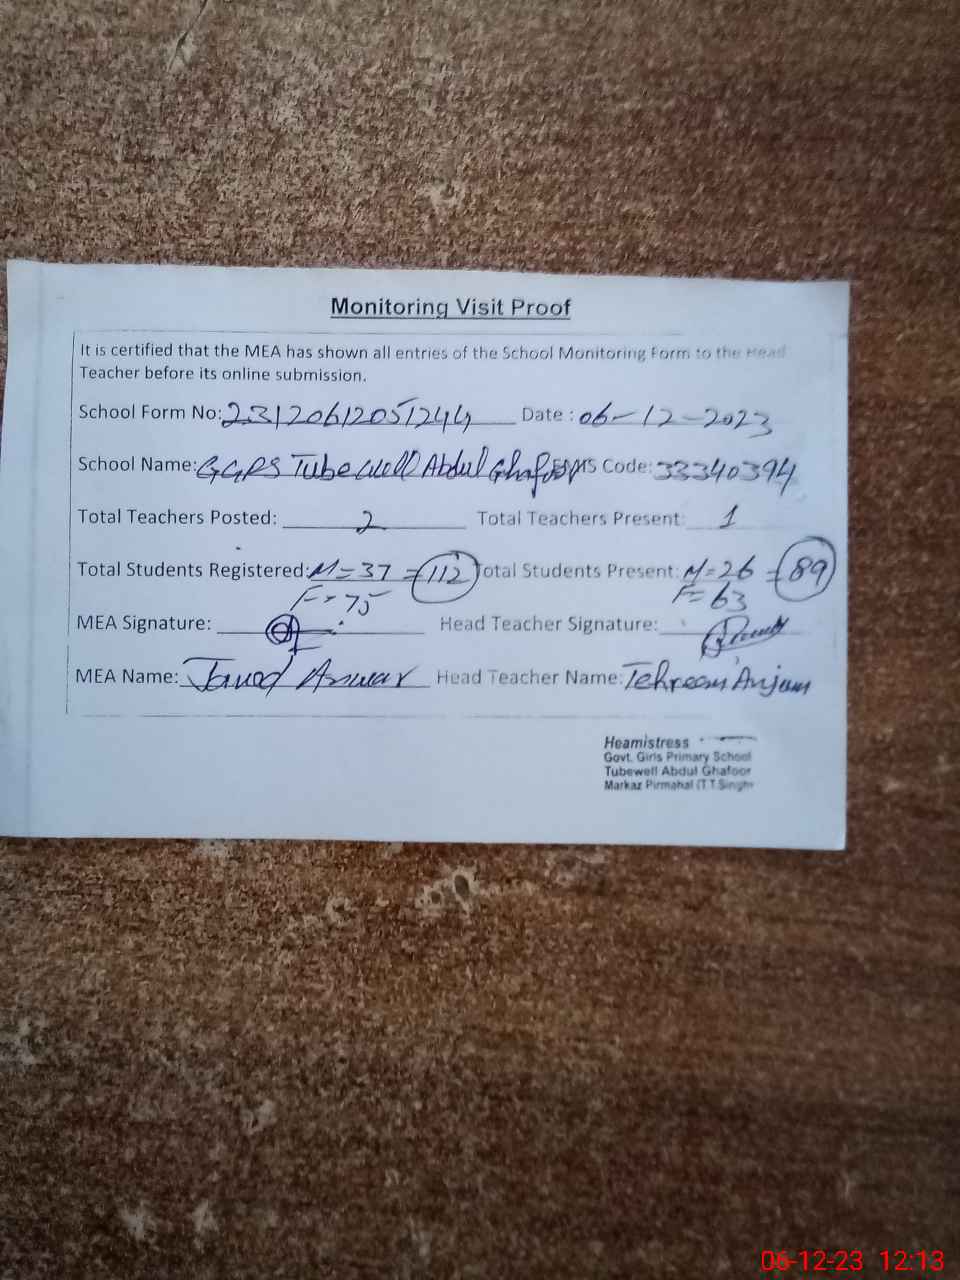 Monitoring Visit Proof
It is certified that the MEA has shown all entries of the School Monitoring Form to the Head
Teacher before its online submission.
School Form No: 23120612051244 Date : 06-12-2023
School Name: GGPS Tubewell Abdul Ghafoor EMIS Code: 33340394
Total Teachers Posted: 2 Total Teachers Present: 1
Total Students Registered: M=37 =112 Total Students Present: M=26 =89
F=75 F=63
MEA Signature: Head Teacher Signature:
MEA Name: Javed Anwar Head Teacher Name: Tehreem Anjum
Heamistress
Govt. Girls Primary School
Tubewell Abdul Ghafoor
Markaz Pirmahal (T.T.Singh)
06-12-23 12:13